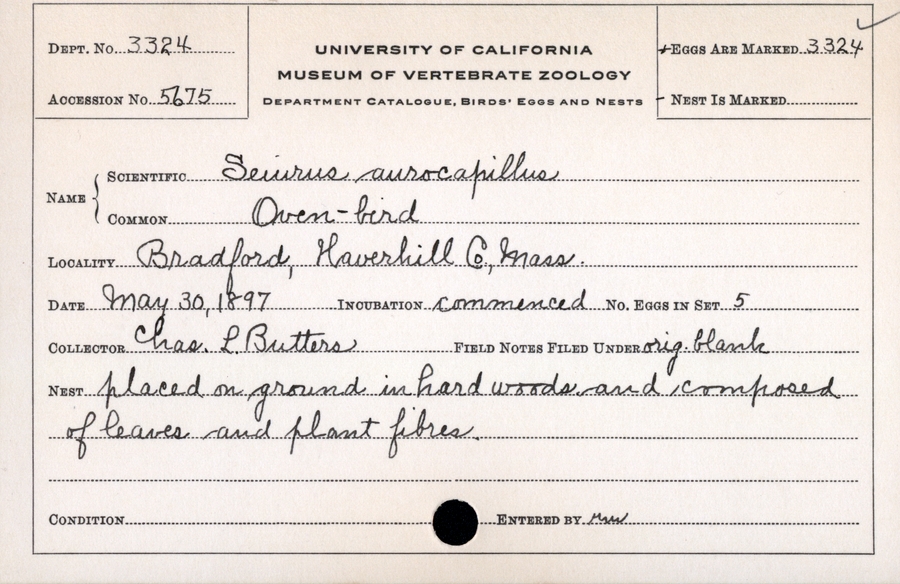 DEPT. NO. 3324
UNIVERSITY OF CALIFORNIA
MUSEUM OF VERTEBRATE ZOOLOGY
DEPARTMENT CATALOGUE, BIRDS' EGGS AND NESTS
EGGS ARE MARKED 3324
ACCESSION NO. 5675
NEST IS MARKED
NAME
SCIENTIFIC Seiurus aurocapillus
COMMON Oven-bird
LOCALITY Bradford, Haverhill Co, Mass.
DATE May 30, 1897 INCUBATION commenced NO. EGGS IN SET 5
COLLECTOR Chas. L. Butters FIELD NOTES FILED UNDER orig. blank
NEST placed on ground in hard woods and composed
of leaves and plant fibres.
CONDITION ENTERED BY